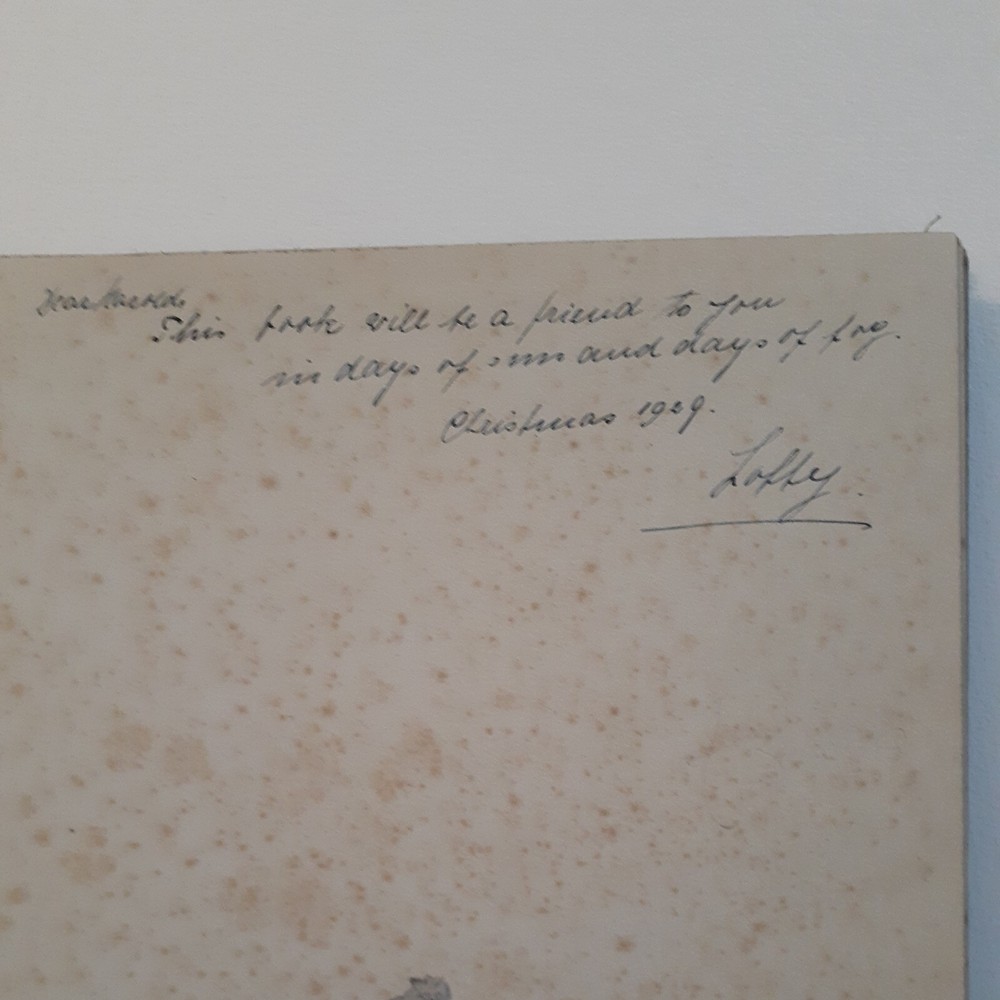 Dear Harold,
This book will be a friend to you
in days of sun and days of fog.
Christmas 1929.
Lofty.